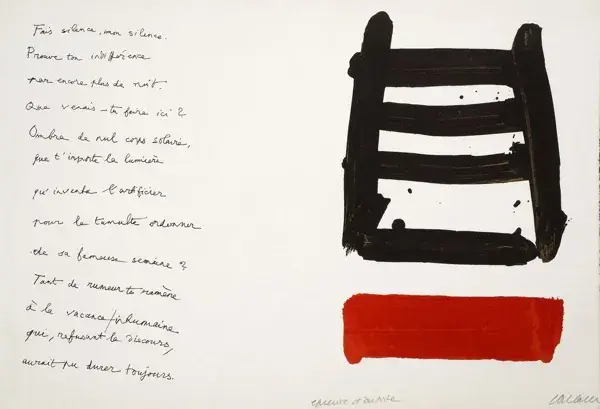 Fais silence, mon silence.
Prouve ton indifférence
par encore plus de nuit.
Que venais-tu faire ici ?
Ombre de nul corps solaire,
que t'importe la lumière
qu'inventa l'artificier
pour le tumulte ordonner
de sa fameuse semaine ?
Tant de rumeur te ramène
à la vacance inhumaine
qui, refusant le discours,
aurait pu durer toujours.
épreuve d'artiste